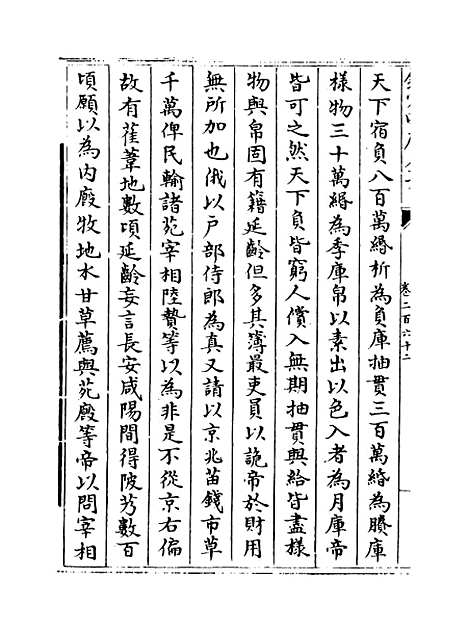 卷二百六十二
天下宿負八百萬緡析為負庫抽貫三百萬緡為賸庫
樣物三十萬緡為季庫帛以素出以色入者為月庫帝
皆可之然天下負皆窮人償入無期抽貫與給皆盡樣
物與帛固有籍延齡但多其簿最吏員以詭帝於財用
無所加也俄以戶部侍郎為真又請以京兆苗錢市草
千萬俾民輸諸苑宰相陸贄等以為非是不從京右偏
故有萑葦地數頃延齡妄言長安咸陽間得陂艿數百
頃願以為內廄牧地水甘草薦與苑廄等帝以問宰相